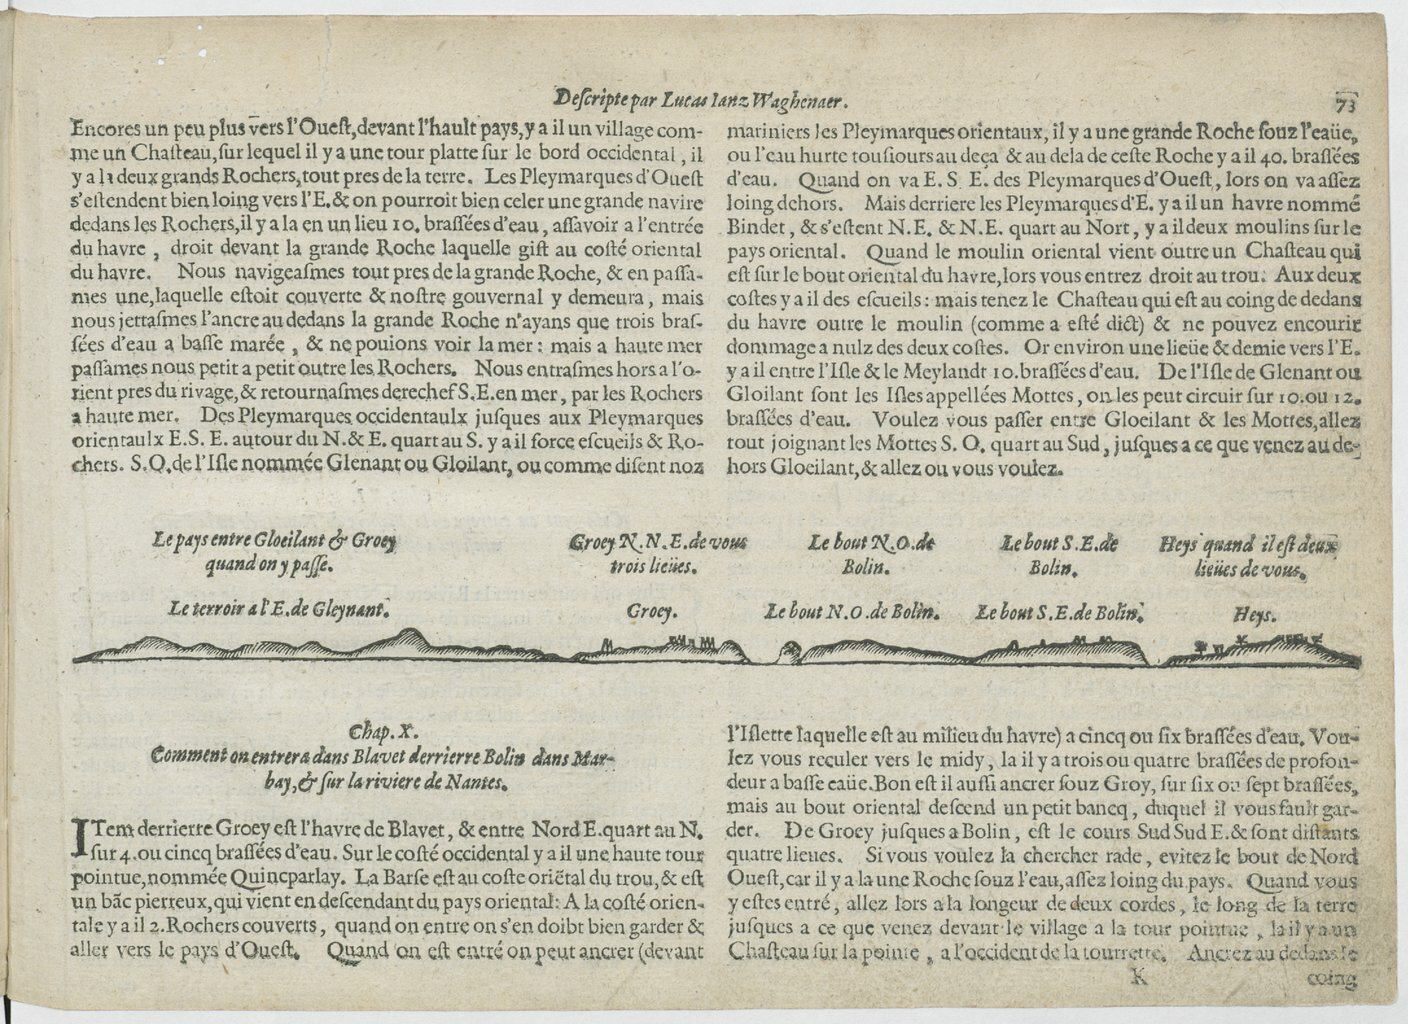 Descripte par Lucas Ianz Waghenaer.
73
Encores un peu plus vers l'Ouest, devant l'hault pays, y a il un village com-
me un Chasteau, sur lequel il y a une tour platte sur le bord occidental, il
y a la deux grands Rochers, tout pres de la terre. Les Pleymarques d'Ouest
s'estendent bien loing vers l'E. & on pourroit bien celer une grande navire
dedans les Rochers, il y a la en un lieu 10. brassées d'eau, assavoir a l'entrée
du havre, droit devant la grande Roche laquelle gist au costé oriental
du havre. Nous navigeasmes tout pres de la grande Roche, & en passa-
mes une, laquelle estoit couverte & nostre gouvernal y demeura, mais
nous jettasmes l'ancre au dedans la grande Roche n'ayans que trois bras-
sées d'eau a basse marée, & ne pouions voir la mer: mais a haute mer
passames nous petit a petit outre les Rochers. Nous entrasmes hors a l'o-
rient pres du rivage, & retournasmes derechef S.E. en mer, par les Rochers
a haute mer. Des Pleymarques occidentaulx jusques aux Pleymarques
orientaulx E.S.E. autour du N. & E. quart au S. y a il force escueils & Ro-
chers. S.O. de l'Isle nommée Glenant ou Gloilant, ou comme disent noz
mariniers les Pleymarques orientaux, il y a une grande Roche souz l'eaüe,
ou l'eau hurte tousiours au deça & au dela de ceste Roche y a il 40. brassées
d'eau. Quand on va E. S. E. des Pleymarques d'Ouest, lors on va assez
loing dehors. Mais derriere les Pleymarques d'E. y a il un havre nommé
Bindet, & s'estent N.E. & N.E. quart au Nort, y a il deux moulins sur le
pays oriental. Quand le moulin oriental vient outre un Chasteau qui
est sur le bout oriental du havre, lors vous entrez droit au trou. Aux deux
costes y a il des escueils: mais tenez le Chasteau qui est au coing de dedans
du havre outre le moulin (comme a esté dict) & ne pouvez encourir
dommage a nulz des deux costes. Or environ une lieüe & demie vers l'E.
y a il entre l'Isle & le Meylandt 10. brassées d'eau. De l'Isle de Glenant ou
Gloilant sont les Isles appellées Mottes, on les peut circuir sur 10. ou 12.
brassées d'eau. Voulez vous passer entre Gloeilant & les Mottes, allez
tout joignant les Mottes S. O. quart au Sud, jusques a ce que venez au de-
hors Gloeilant, & allez ou vous voulez.
Le pays entre Gloeilant & Groey
quand on y passe.
Groey N.N.E. de vous
trois lieües.
Le bout N.O. de
Bolin.
Le bout S.E. de
Bolin.
Heys quand il est deux
lieües de vous.
Le terroir a l'E. de Gleynant.
Groey.
Le bout N.O. de Bolin.
Le bout S.E. de Bolin.
Heys.
Chap. X.
Comment on entrera dans Blavet derrierre Bolin dans Mar-
bay, & sur la riviere de Nantes.
ITem derrierre Groey est l'havre de Blavet, & entre Nord E. quart au N.
sur 4. ou cincq brassées d'eau. Sur le costé occidental y a il une haute tour
pointue, nommée Quincparlay. La Barse est au coste oriētal du trou, & est
un bāc pierreux, qui vient en descendant du pays oriental: A la costé orien-
tale y a il 2. Rochers couverts, quand on entre on s'en doibt bien garder &
aller vers le pays d'Ouest. Quand on est entré on peut ancrer (devant
l'Islette laquelle est au milieu du havre) a cincq ou six brassées d'eau. Vou-
lez vous reculer vers le midy, la il y a trois ou quatre brassées de profon-
deur a basse eaüe. Bon est il aussi ancrer souz Groy, sur six ou sept brassées,
mais au bout oriental descend un petit bancq, duquel il vous fault gar-
der. De Groey jusques a Bolin, est le cours Sud Sud E. & sont distants
quatre lieues. Si vous voulez la chercher rade, evitez le bout de Nord
Ouest, car il y a la une Roche souz l'eau, assez loing du pays. Quand vous
y estes entré, allez lors a la longeur de deux cordes, le long de la terre
jusques a ce que venez devant le village a la tour pointue, la il y a un
Chasteau sur la pointe, a l'occident de la tourrette. Ancrez au dedans le
K
coing